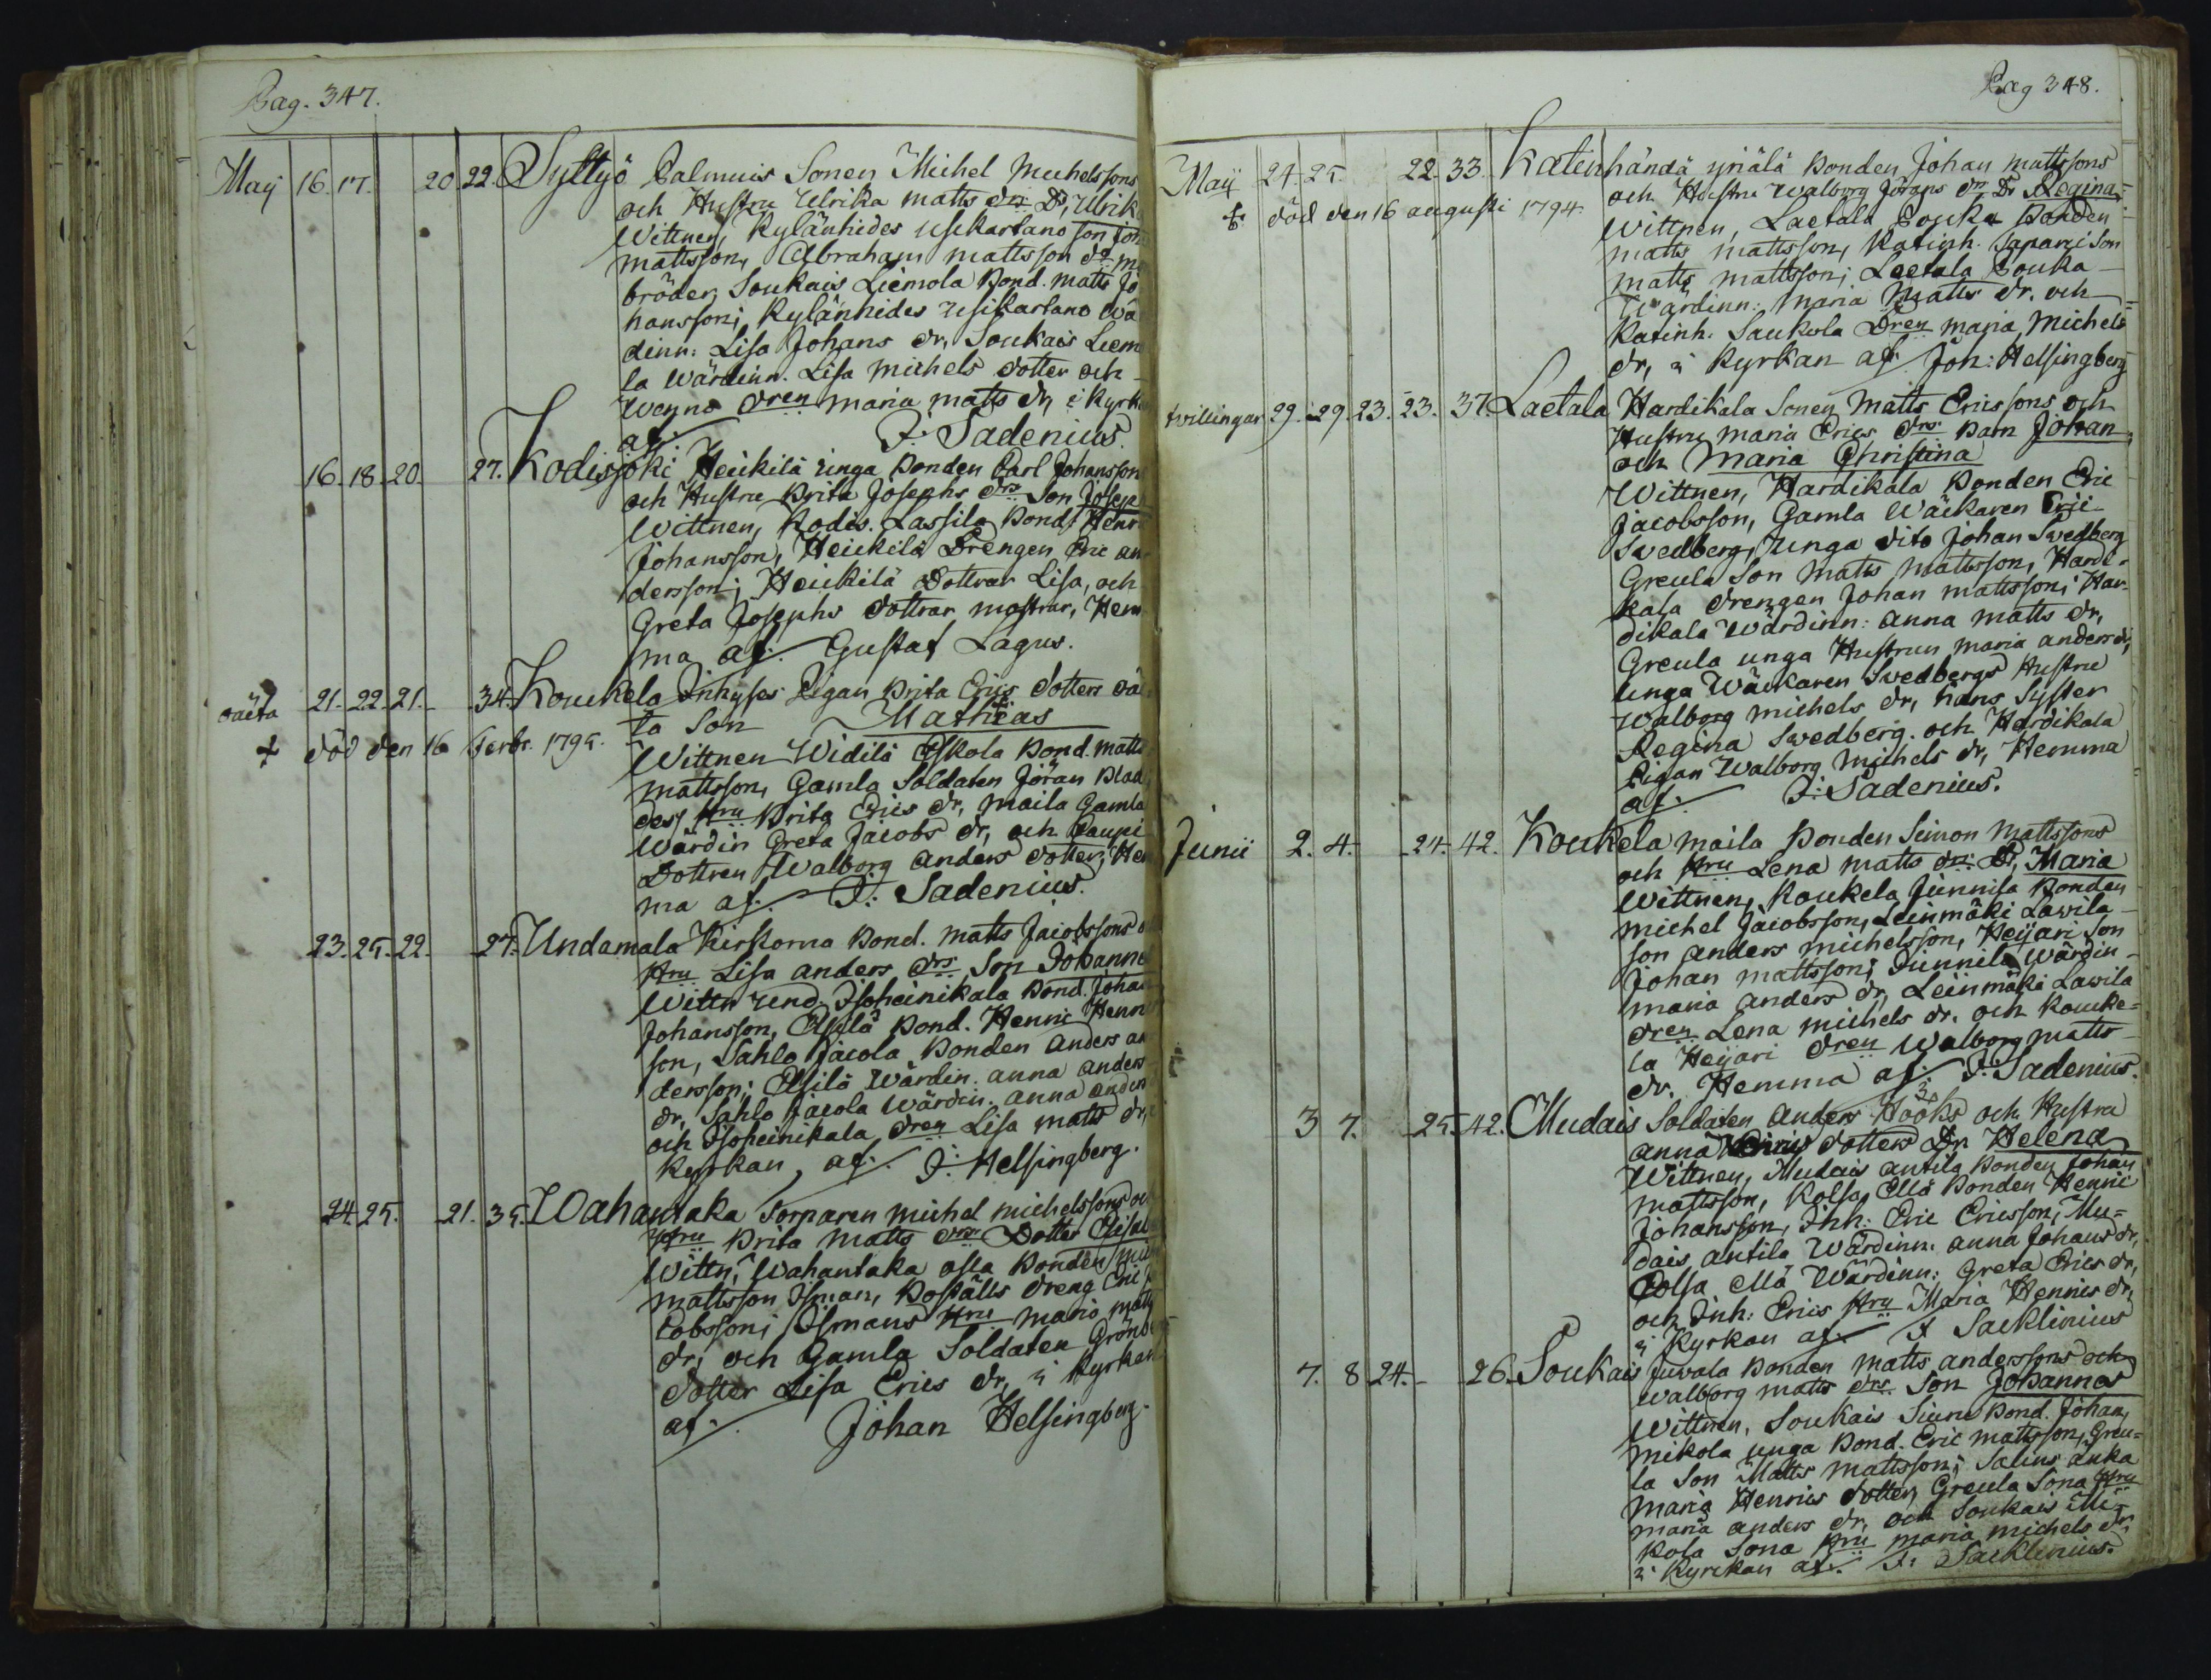 Pag. 347.
May 16. 17. 20 22. Syttyö Palmuis Sonen Michel Michelssons
och Hustru Ulrika matts drs Dr, Ulrik
Wittnen, Kylänhides Usikartano son Joh
mattsson, Abraham mattsson do
bröder, Soukais Liemola Bond. matts Jo
hansson; Kylänhides Usikartano Wä
dinn: Lisa Johans dr, Soukais Liem
la Wärdinn. Lisa Michels dotter och
Weyno dren maria matts dr, i Kyrk
af. F: Sadenius.
16. 18. 20. 27. Kodisjoki Heikilä unga Bonden Carl Johansson
och Hustru Brita Josephs drs Son Josep
Wittnen, Kodis. Lassila Bond. Henr
Johansson, Heikilä Drengen Eric an
dersson; Heikilä Dottrar Lisa, och
Greta Josephs dottrar mostrar, Hem
ma af. Gustaf Lagus.
oäcta 21. 22. 21. 34. Koukela Inhyses Pigan Brita Erics dotters oäc
ta Son Mathias
+ död den 16 Febr. 1795.
Wittnen Widilä Eskola Bond. matts
mattsson, Gamla Soldaten Jöran Blad
des Hru Brita Erics dr, Maila Gamla
Wärdin Greta Jacobs dr, och Caupi
Dottren Walborg Anders dotter, Hem
ma af. F: Sadenius.
23. 25. 22. 27. Undamala Kirstorna Bond. Matts Jacobssons o
Hru Lisa anders drs Son Johannes
Wittn Und. Isoheinikala Bond. Johan
Johansson, Ylilä Bond. Henric Henri
son, Sahlo Jacola Bonden Anders an
dersson; Ylilä Wärdin. anna anders
dr, Sahlo Jacola Wärdin. anna anders
och Isoheinikala dren Lisa matts dr,
Kyrkan, af. J: Helsingberg.
24. 25. 21. 35. Wahantaka Torparen Michel Michelssons oc
Hru Brita Matts drs Dotter Elisab
Wittn, Wahantaka Ylla Bonden
mattsson Isman, Postälts Dreng Eric J
cobsson; Ismans Hru Maria matts
dr, och Gamla Soldaten Grönb
dotter Lisa Erics dr, i Kyrkan
af. Johan Helsingberg.
Pag 348.
Maij 24. 25. 22. 33. Katinhändä yriälä Bonden Johan mattssons
och Hustru Walborg Jörans drs Dr Regina
+ död den 16 augusti 1794.
Wittnen, Laetala Pouka Bonden
matts mattsson, Katinh. Saparci Son
matts mattsson; Laetala Pouka
Wärdinn: Maria Matts dr. och
Katinh. Saukola Dren maria, Michels
dr, i Kyrkan af. Joh: Helsingberg
tvillingar 29. 29. 23. 23. 37. Laetala Hardikala Sonen Matts Ericssons och
Hustru maria Erics drs Barn Johan
och Maria Christina
Wittnen, Hardikala Bonden Eric
Jacobsson, Gamla Wäckaren Eric
Swedberg, Unga dito Johan Swedberg
Greula Son matts mattsson, Hardi-
kala drengen Johan mattsson; Har-
dikala Wärdinn: anna matts dr,
Greula unga Hustrun maria anders dr,
Unga Wäckaren Swedbergs Hustru
Walborg michels dr, hans Syster
Regina Swedberg. och Hardikala
Pigan Walborg Michels dr, Hemma
af. F: Sadenius.
Junii 2. 4. 24. 42. Koukela Maila Bonden Simon Mattssons
och Hru Lena matts drs Dr, Maria
Wittnen, Koukela Junnila Bonden
Michel Jacobsson, Leinmäki Lawila
son anders michelsson, Heijari Son
Johan mattsson; Junnila Wärdin
maria anders dr, Leinmäki Lawila
dren Lena michels dr. och Kouke=
la Heijari dren Walborg matts
dr. Hemma af. F: Sadenius.
3 7. 25. 42. Mudais Soldaten Anders Hööks och Hustru
anna dotters Dr Helena
Wittnen, Mudais antila Bonden Johan
mattsson, Kolla Ellä Bonden Henric
Johansson, Inh: Eric Ericsson; Mu=
dais antila Wärdinn: anna Johans dr,
Colla Ellä Wärdinn: Greta Erics dr,
och Inh: Erics Hru Maria Henrics dr,
i Kyrkan af. F Sacklinius
7. 8 24. 26. Soukais Juvala Bonden matts anderssons och
Walborg matts drs Son Johannes
Wittnen, Soukais Siuru Bond. Johan,
Mikola unga Bond. Eric mattsson, Greu=
la Son Matts mattsson; Salius anka
Maria Henrics dotter, Greula Sona Hru
maria anders dr, och Soukais Mi=
kola Sona Hru maria michels dr,
i Kyrckan af. F: Sacklinius.